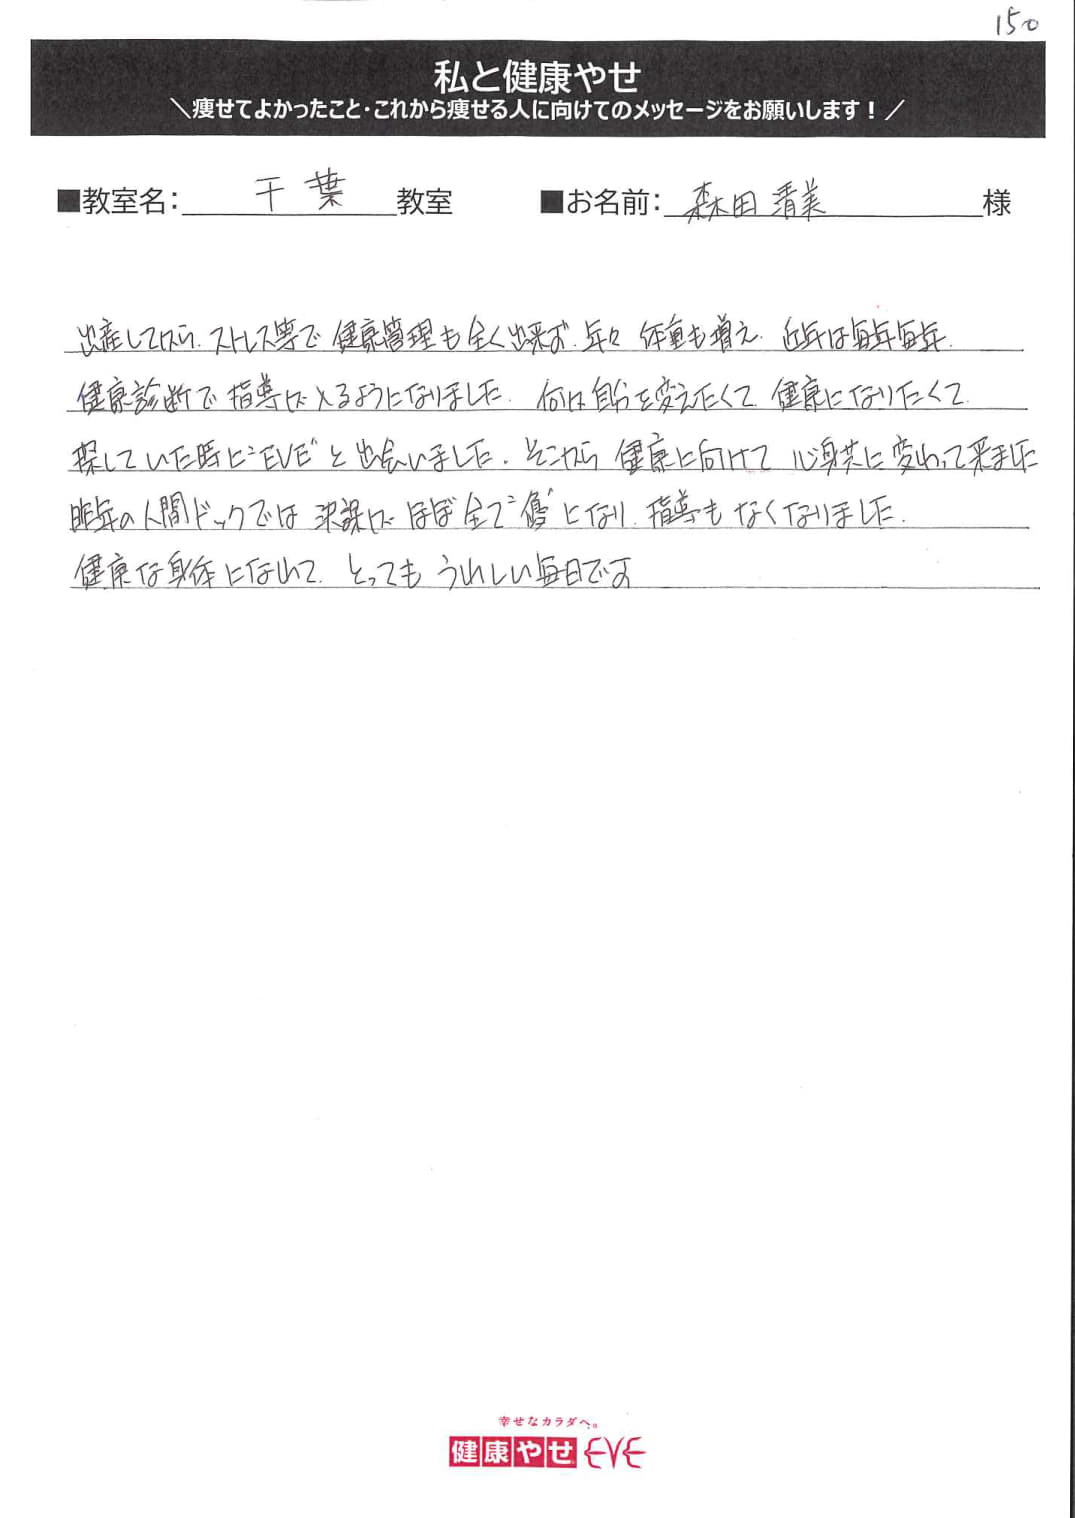 150
私と健康やせ
＼痩せてよかったこと・これから痩せる人に向けてのメッセージをお願いします！／
■教室名： 千葉 教室 ■お名前： 森田 清美 様
出産してから、ストレス等で 健康管理も全く出来ず、年々 体重も増え、近年は毎年毎年、
健康診断で 指導が入るようになりました。 何か自分を変えたくて、健康になりたくて、
探していた時に"EVE"と出会いました。そこから 健康に向けて 心身共に変わって来ました
昨年の人間ドックでは 結果が ほぼ全て"優"になり、指導も なくなりました。
健康な身体になれて、とっても うれしい毎日です
幸せなカラダへ。
健康やせ EVE